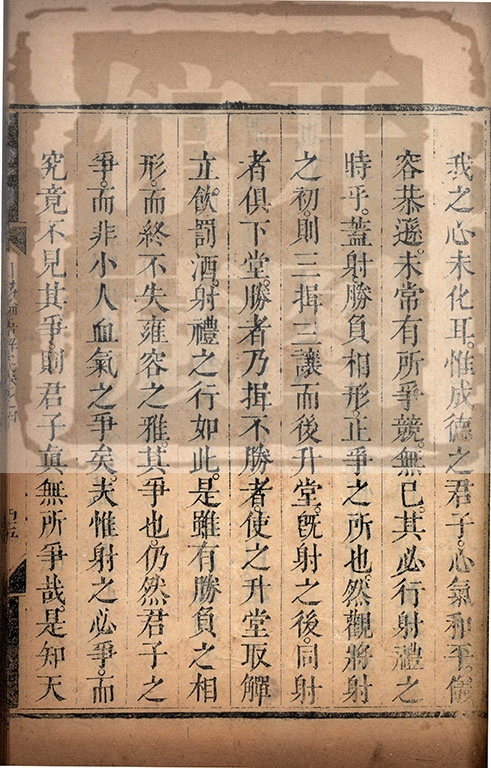 我之心未化耳。惟成德之君子。心氣和平。儀
容恭遜。未常有所爭競。無已。其必行射禮之
時乎。蓋射勝負相形。正爭之所也。然觀將射
之初。則三揖三讓而後升堂。旣射之後。同射
者俱下堂。勝者乃揖不勝者。使之升堂取觶
立飮罰酒。射禮之行如此。是雖有勝負之相
形。而終不失雍容之雅。其爭也仍然君子之
爭。而非小人血氣之爭矣。夫惟射之必爭。而
究竟不見其爭。則君子眞無所爭哉。是知天